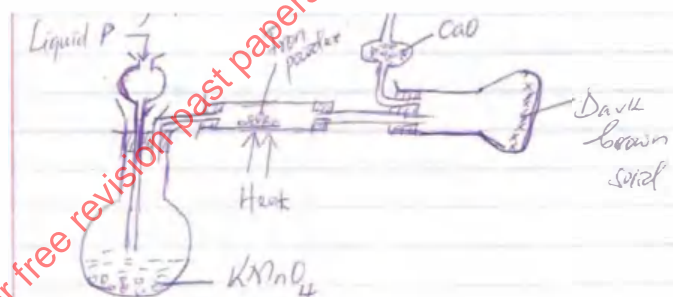 Liquid P
Iron
powder
CaO
Dark
brown
solid
Heat
KMnO4
for free revision past papers